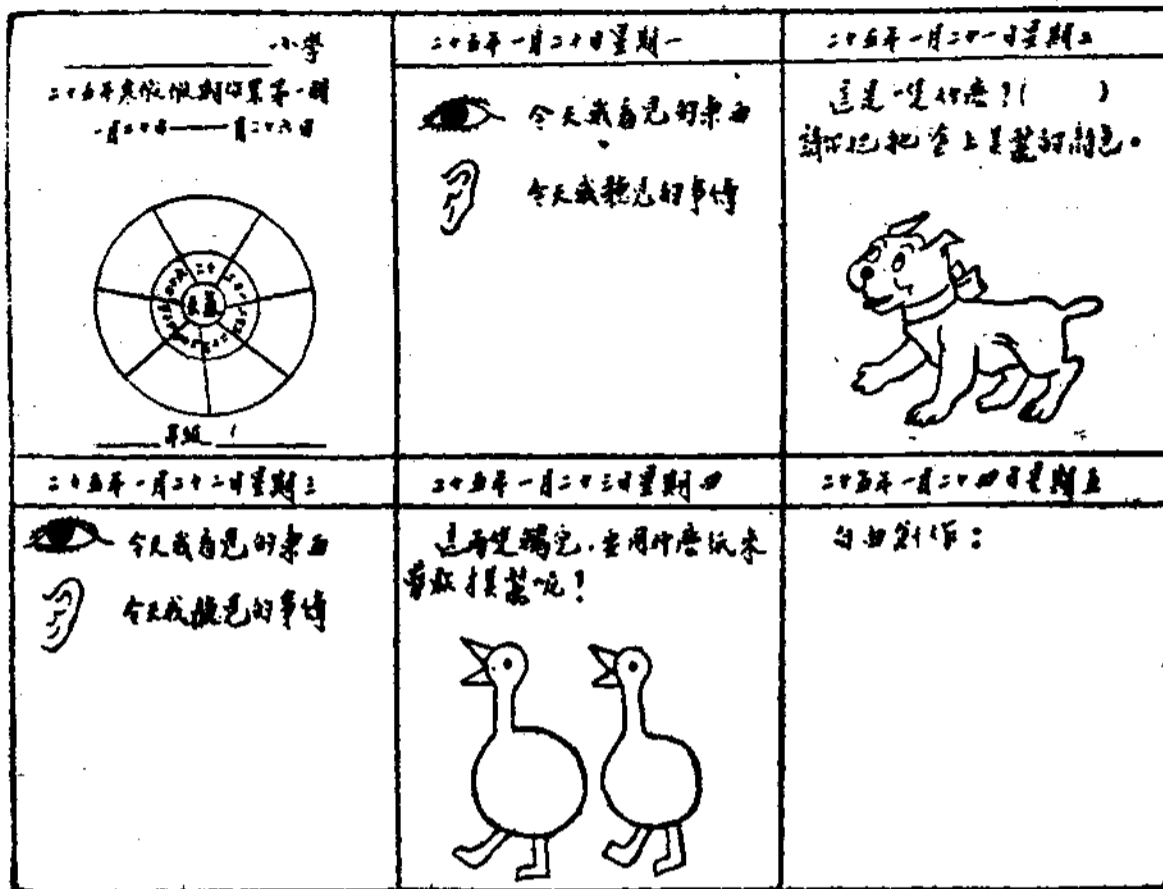 小學
二十五年寒假假期作業第一期
一月二十日——一月二十六日
天氣
年級
二十五年一月二十日星期一
今天我看見的東西
今天我聽見的事情
二十五年一月二十一日星期二
這是一隻什麼?( )
請你把牠塗上美麗的顏色。
二十五年一月二十二日星期三
今天我看見的東西
今天我聽見的事情
二十五年一月二十三日星期四
這兩隻鴨兒,要用什麼紙來
剪貼才美麗呢?
二十五年一月二十四日星期五
自由創作: